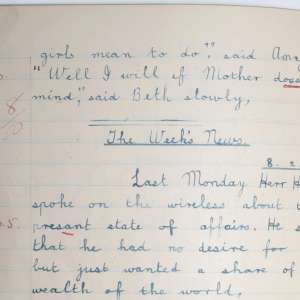 girls mean to do?" said Amy
"Well I will if Mother does
mind," said Beth slowly,
8
10
The Week's News.
8. 2
Last Monday Herr H
spoke on the wireless about t
presant state of affairs. He s
that he had no desire for
5.
but just wanted a share of
wealth of the world,